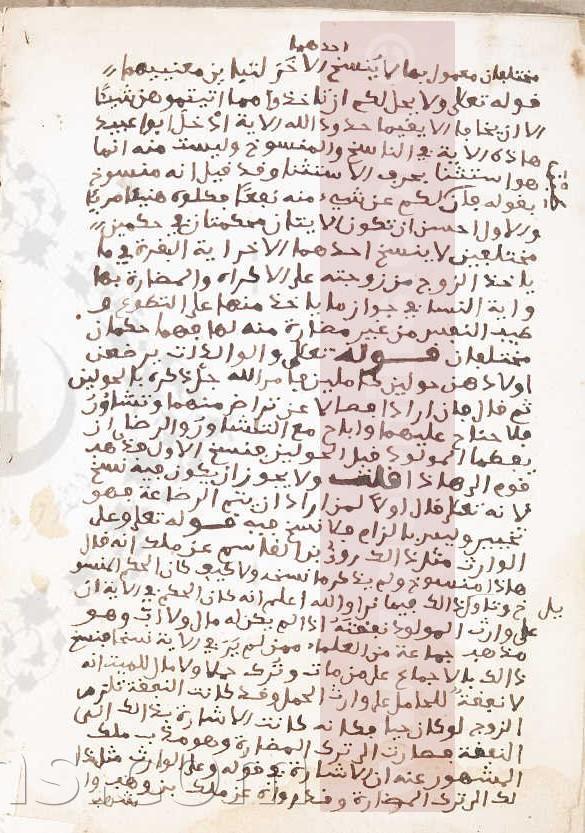 احدهما
مختلفان معمول بهما لا ينسخ الاخر لتباين معنييهما
قوله تعلى ولا يحل لكم ان تاخذوا مما اتيتموهن شيئا
الا ان يخافا الا يقيما حدود الله الاية ادخل ابوا عبيد
هاذه الاية في الناسخ والمنسوخ وليست منه انما
هو استثنا بحرف الاستثنا وقد قيل انه منسوخ
بقوله فان لكم عن شيء منه نفسا فكلوه هنيئا مريا
والاول احسن ان تكون الايتان محكمتان في حكمين
مختلفين لا ينسخ احدهما الاخر اية البقرة في ما
ياخذ الزوج من زوجته على الاكراه والمضارة بها
واية النسا في جواز ما ياخذ منها على التطوع و
طيب النفس من غير مضارة منه لها فهما حكمان
مختلفان قوله تعلى والوالدات يرضعن
اولادهن حولين كاملين امر الله جل ذكره بالحولين
ثم قال فان ارادا فصالا عن تراض منهما وتشاور
فلا جناح عليهما واباح مع التشاور والرضا ان
يفطما المولود قبل الحولين فنسخ الاول هذا مذهب
قوم الى هاذا قلت ولا يجوز ان يكون فيه نسخ
لانه تعلى قال اولا لمن اراد ان يتم الرضاعة فهو
تخيير وليس بالزام فلا نسخ فيه قوله تعلى وعلى
الوارث مثل ذالك روى ابن القاسم عن ملك انه قال
هاذا منسوخ ولم يذكر ما نسخه ولا كيف كان الحكم المنسو
خ وتاول ذالك فيما نرا والله اعلم انه كان الحكم في الاية ان
على وارث المولود نفقته اذا لم يكن له مال ولا اب وهو
مذهب جماعة من العلماء ممن لم ير في الاية نسخا فنسخ
ذالك بالاجماع على من مات وترك حملا ولا مال للميت انه
لا نفقة للحامل على وارث الحمل وقد كانت النفقة تلزم
الزوج لو كان حيا فكانه كانت الاشارة بذالك الى
النفقة فصارت الى ترك المضارة وهو مذهب ملك
المشهور عنه ان الاشارة في قوله وعلى الوارث مثل ذا
لك الى ترك المضارة وقد رواه عن ملك ابن وهب وا
شهب